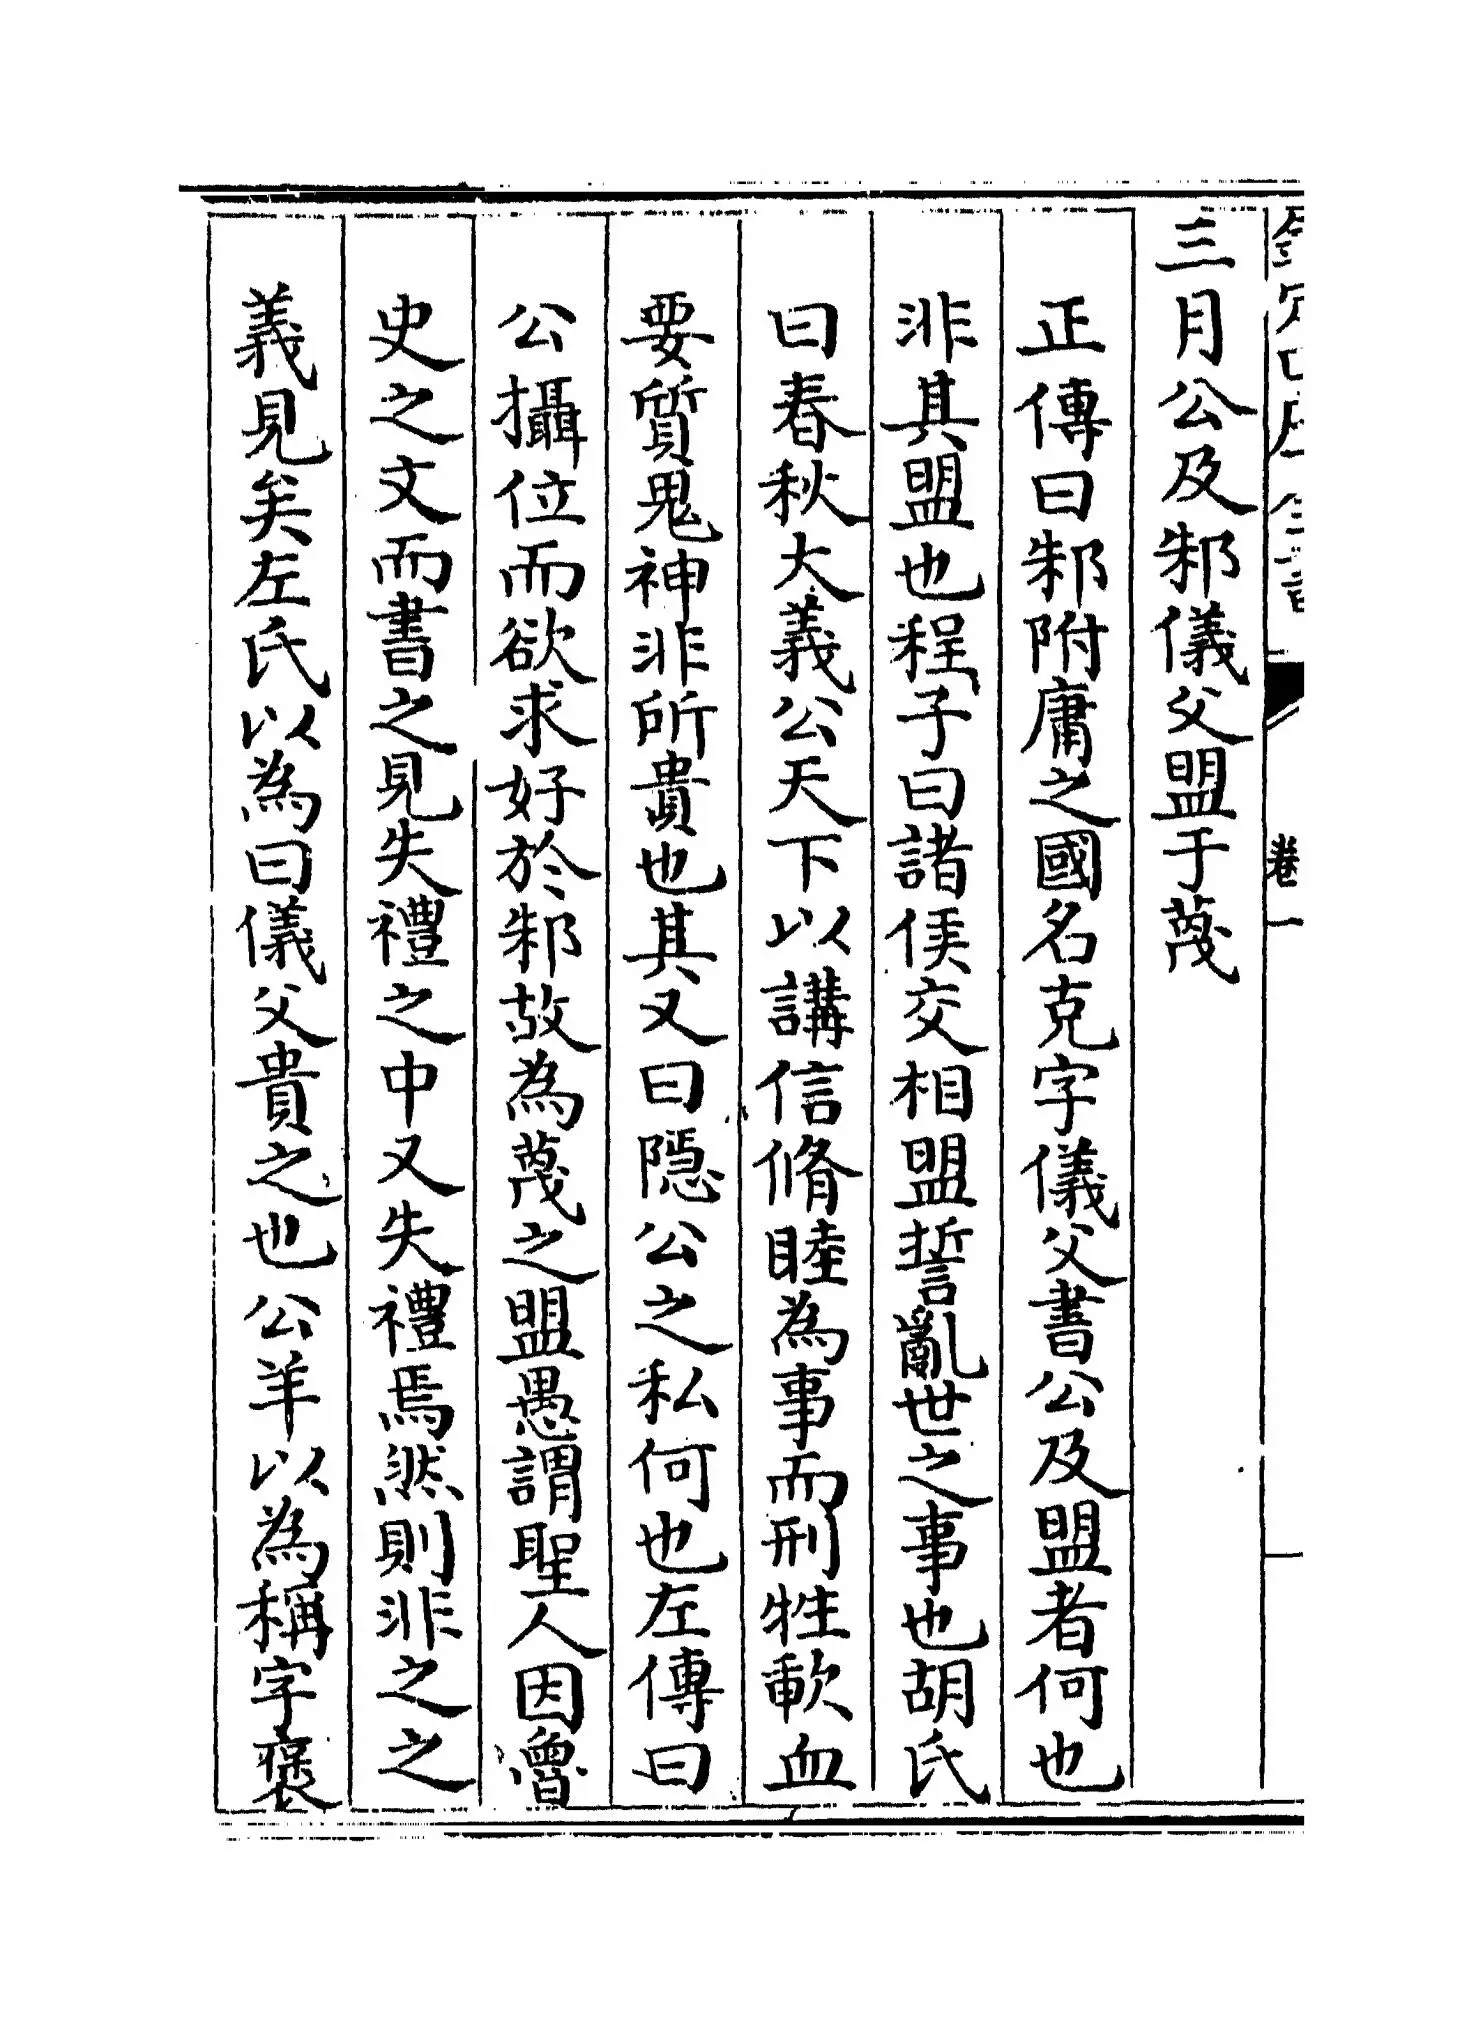 三月公及邾儀父盟于蔑
正傳曰邾附庸之國名克字儀父書公及盟者何也
非其盟也程子曰諸侯交相盟誓亂世之事也胡氏
曰春秋大義公天下以講信脩睦為事而刑牲歃血
要質鬼神非所貴也其又曰隱公之私何也左傳曰
公攝位而欲求好於邾故為蔑之盟愚謂聖人因魯
史之文而書之見失禮之中又失禮焉然則非之之
義見矣左氏以為曰儀父貴之也公羊以為稱字褒
卷一